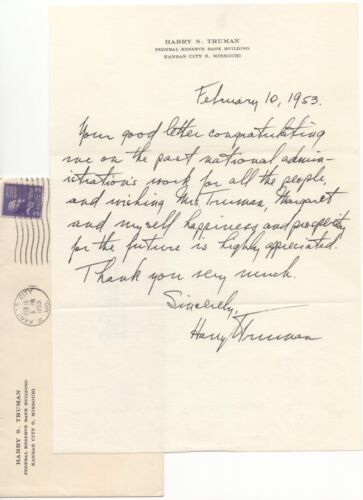 HARRY S. TRUMAN
FEDERAL RESERVE BANK BUILDING
KANSAS CITY 6, MISSOURI
February 10, 1953.
Your good letter congratulating
me on the past national admin-
istration's work for all the people,
and wishing Mrs. Truman, Margaret
and myself happiness and prosperity
for the future is highly appreciated.
Thank you very much.
Sincerely,
Harry Truman
KANSAS CITY
FEB
5 PM
1953
MO.
HARRY S. TRUMAN
FEDERAL RESERVE BANK BUILDING
KANSAS CITY 6, MISSOURI